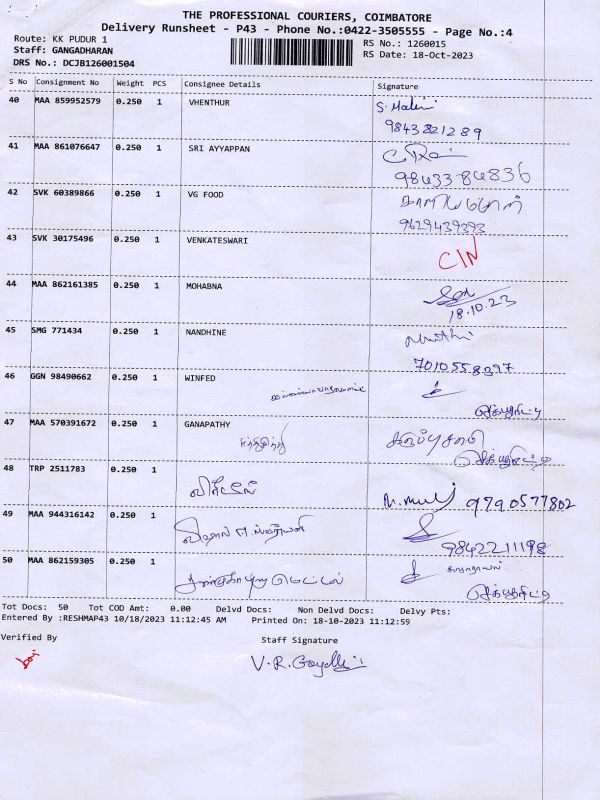 THE PROFESSIONAL COURIERS, COIMBATORE
Delivery Runsheet - P43 - Phone No.:0422-3505555 - Page No.:4
Route: KK PUDUR 1
RS No.: 1260015
Staff: GANGADHARAN
RS Date: 18-Oct-2023
DRS No.: DCJB126001504
S No Consignment No Weight PCS Consignee Details Signature
40 MAA 859952579 0.250 1 VHENTHUR
9843821289
41 MAA 861076647 0.250 1 SRI AYYAPPAN
9843384836
42 SVK 60389866 0.250 1 VG FOOD
9629439393
43 SVK 30175496 0.250 1 VENKATESWARI
CIN
44 MAA 862161385 0.250 1 MOHABNA
18.10.23
45 SMG 771434 0.250 1 NANDHINE
7010558397
46 GGN 98490662 0.250 1 WINFED
செக்யூரிட்டி
47 MAA 570391672 0.250 1 GANAPATHY
கருப்புசாமி
செக்யூரிட்டி
48 TRP 2511783 0.250 1
9790577802
49 MAA 944316142 0.250 1
9842211198
50 MAA 862159305 0.250 1
மெட்டல்
செக்யூரிட்டி
Tot Docs: 50 Tot COD Amt: 0.00 Delvd Docs: Non Delvd Docs: Delvy Pts:
Entered By :RESHMAP43 10/18/2023 11:12:45 AM Printed On: 18-10-2023 11:12:59
Verified By
Staff Signature